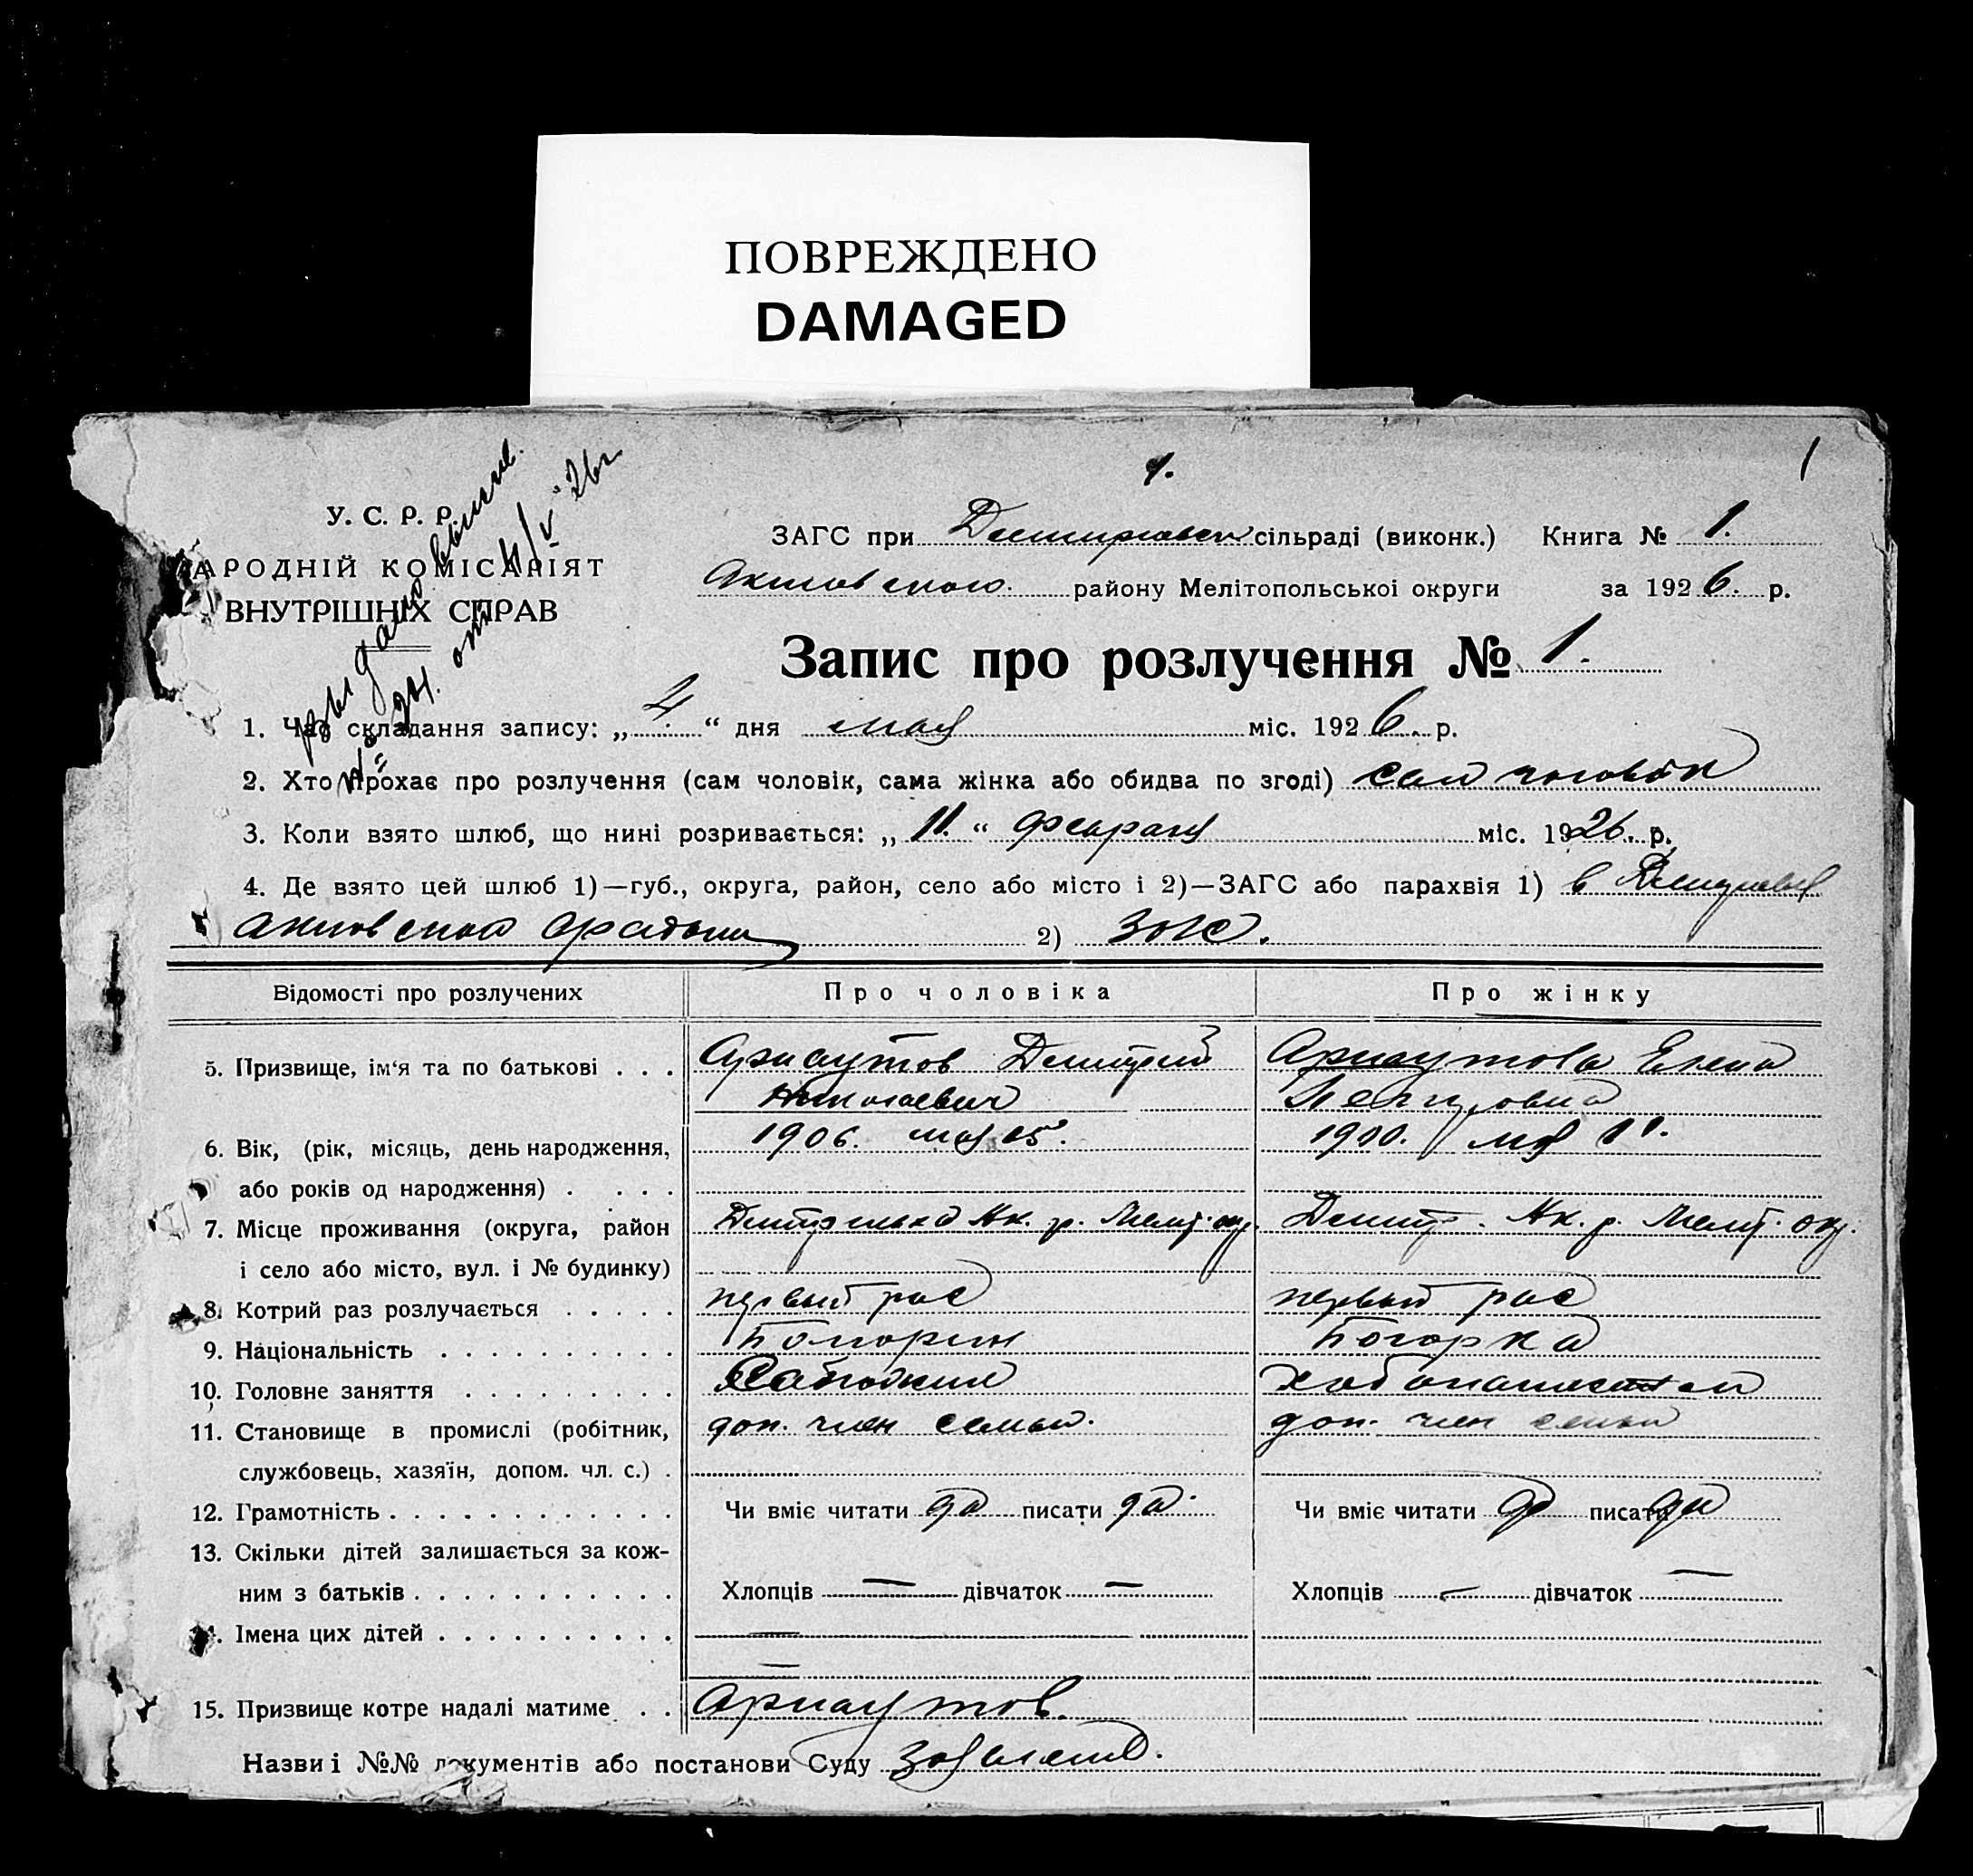 ПОВРЕЖДЕНО
DAMAGED
1.
1
У. С. Р. Р.
АРОДНІЙ КОМІСАРІЯТ
ВНУТРІШНІХ СПРАВ
ЗАГС при сільраді (виконк.) Книга № 1.
Акимовского району Мелітопольської округи за 1926. р.
Запис про розлучення № 1.
1. Час складання запису: „4.“ дня мая міс. 1926. р.
2. Хто прохає про розлучення (сам чоловік, сама жінка або обидва по згоді) сам чоловік
3. Коли взято шлюб, що нині розривається: „11.“ февраля міс. 1926. р.
4. Де взято цей шлюб 1)—губ., округа, район, село або місто і 2)—ЗАГС або парахвія 1) в
Акимовского района 2) загс.
Відомості про розлучених Про чоловіка Про жінку
5. Призвище, ім‘я та по батькові . . . Арнаутов Дмитрий Арнаутова Елена
Николаевич Петровна
6. Вік, (рік, місяць, день народження, 1906. мая 1900. мая 11.
або років од народження) . . . .
7. Місце проживання (округа, район Ак. р. Мелит. окр. Дмитр. Ак. р. Мелит. окр.
і село або місто, вул. і № будинку)
8. Котрий раз розлучається . . . . . первый раз первый раз
9. Національність . . . . . . . . . . Болгарин Болгарка
10. Головне заняття . . . . . . . . .
11. Становище в промислі (робітник, доп. член семьи. доп. член семьи
службовець, хазяїн, допом. чл. с.) .
12. Грамотність . . . . . . . . . . . . Чи вміє читати да писати да. Чи вміє читати да писати да
13. Скільки дітей залишається за кож-
ним з батьків . . . . . . . . . . . Хлопців — дівчаток — Хлопців — дівчаток —
14. Імена цих дітей . . . . . . . . . . —
—
15. Призвище котре надалі матиме . . Арнаутов.
Назви і №№ документів або постанови Суду